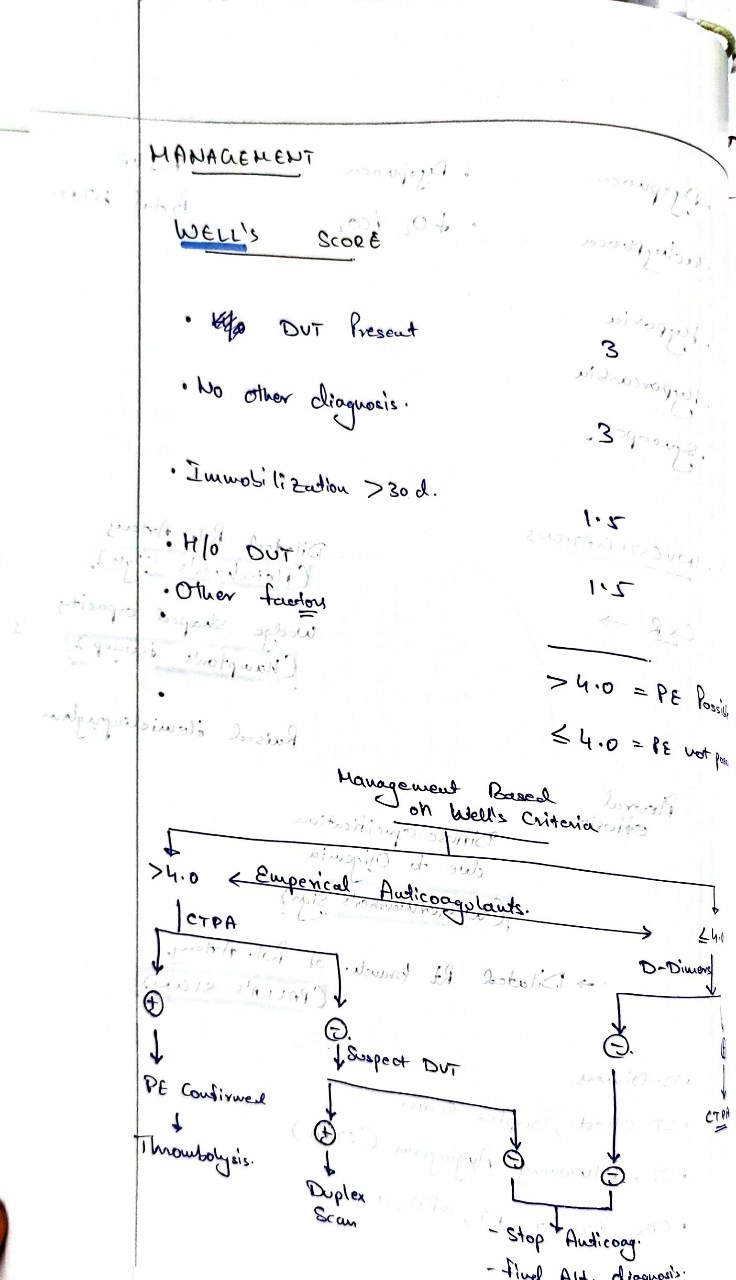 MANAGEMENT
WELL'S SCORE
• DVT Present 3
• No other diagnosis. 3
• Immobilization >30 d. 1.5
• H/o DVT 1.5
• Other factors
•
•
>4.0 = PE Possi
≤ 4.0 = PE not
Management Based
on Well's Criteria
>4.0 Emperical Anticoagulants. ≤4.0
CTPA D-Dimers
+ - -
Suspect DVT
PE Confirmed CTPA
+ - -
Thrombolysis.
Duplex
Scan
- Stop Anticoag.
- find Alt. diagnosis.